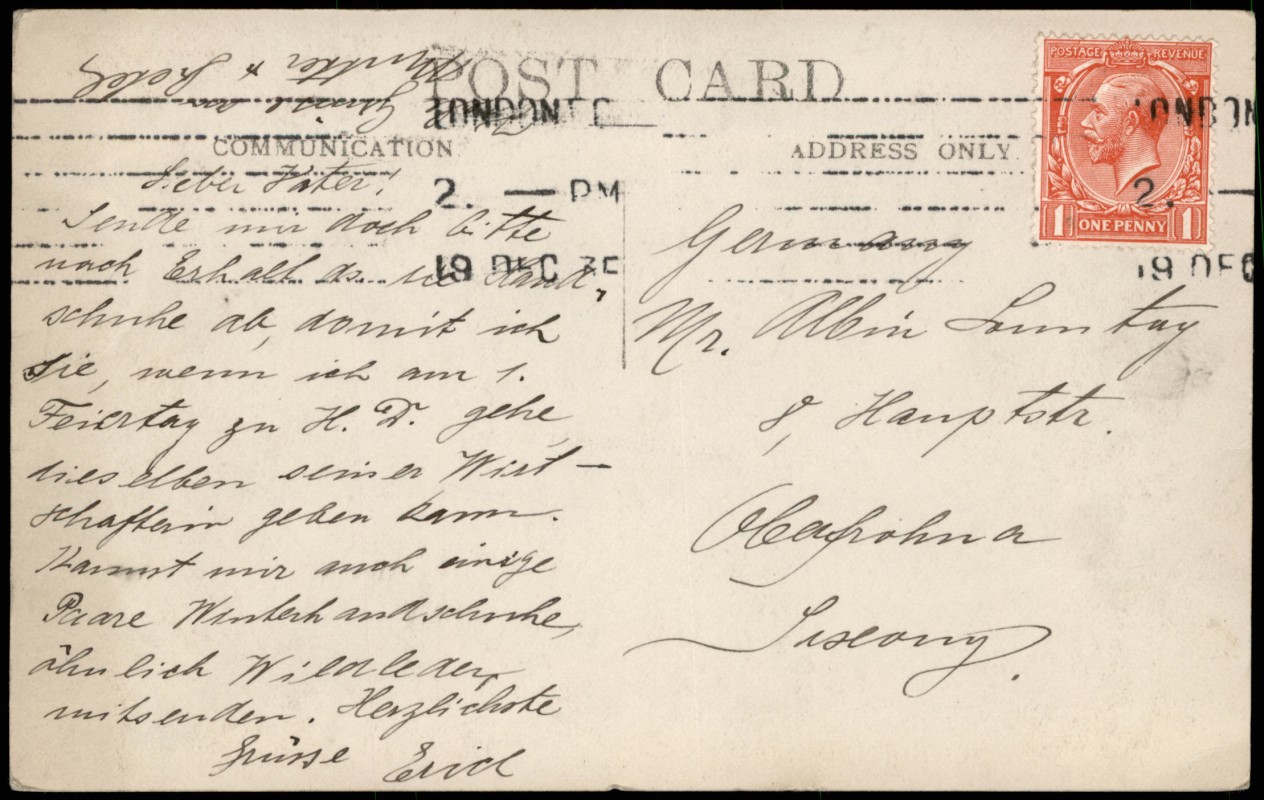 POST CARD
COMMUNICATION
ADDRESS ONLY
POSTAGE REVENUE
1 ONE PENNY 1
LONDON E C
2. — PM
19 DEC 35
LONDON
2. —
19 DEC
Lieber Vater!
Sende mir doch bitte
nach Erhalt ds. die Hand-
schuhe ab, damit ich
sie, wenn ich am 1.
Feiertag zu H. D. gehe,
dieselben seiner Wirt-
schafterin geben kann.
Kannst mir auch einige
Paare Winterhandschuhe,
ähnlich Wildleder,
mitsenden. Herzlichste
Grüsse Erich
Mutter &
Germany
Mr. Albin Sonntag
8, Hauptstr.
Oberfrohna
Saxony.